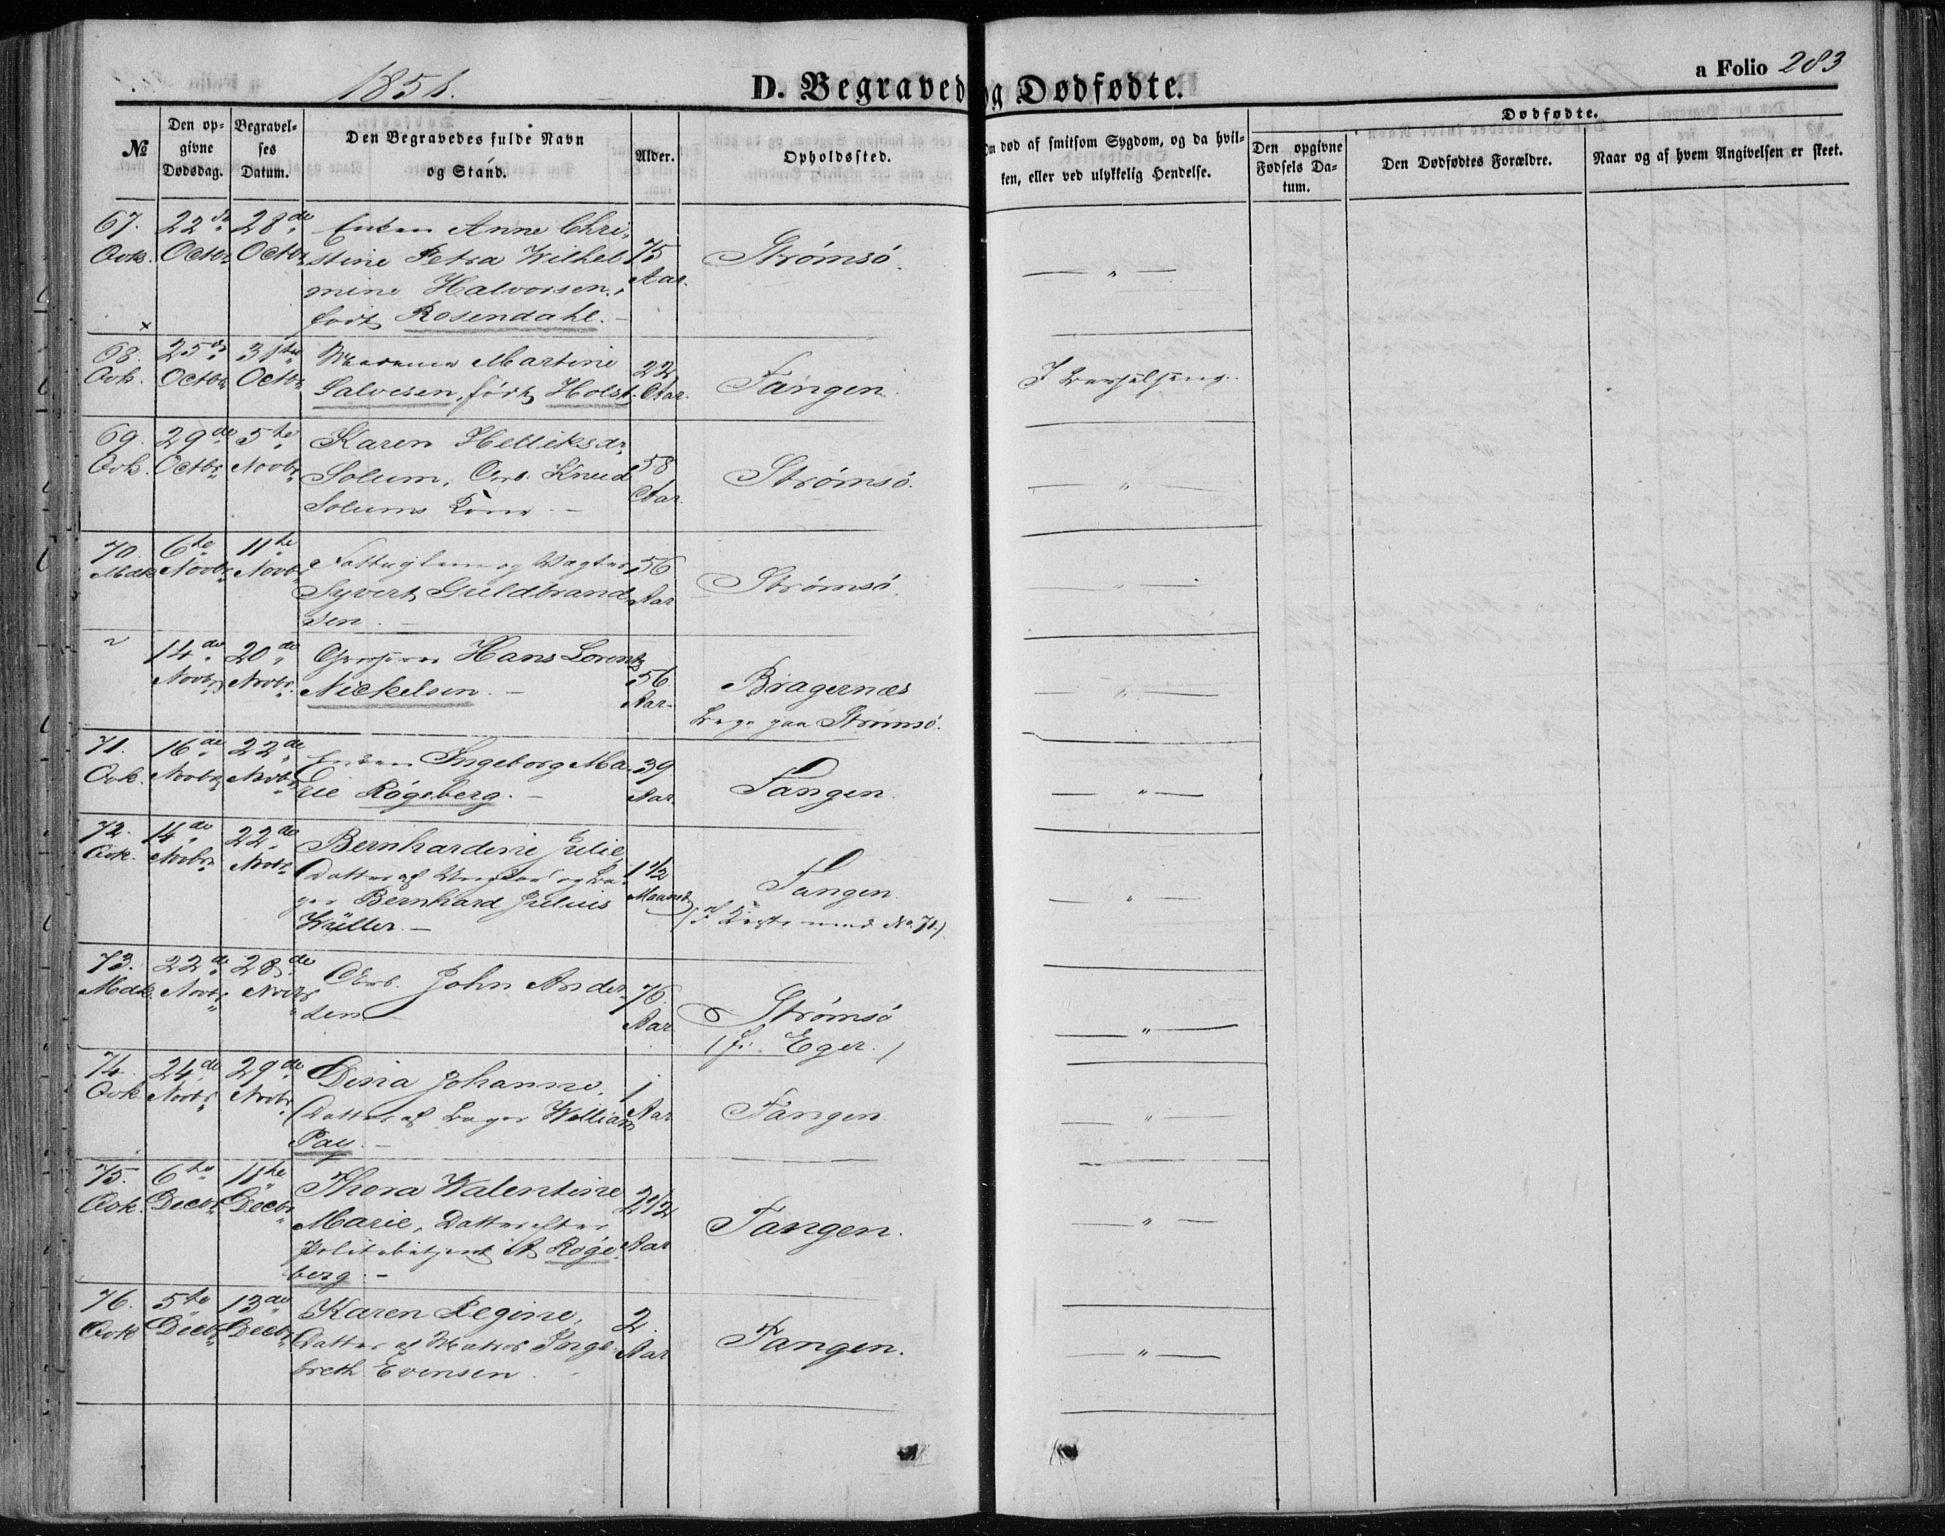 1851.
D. Begravede og Dødfødte.
a Folio 283
№
Den opgivne Dødsdag.
Begravelses Datum.
Den Begravedes fulde Navn og Stand.
Alder.
Opholdssted.
Om død af smitsom Sygdom, og da hvilken, eller ved ulykkelig Hendelse.
Dødfødte.
Den opgivne Fødsels Datum.
Den Dødfødtes Forældre.
Naar og af hvem Angivelsen er skeet.
67. Qvk. 22de Octbr 28de Octbr Enken Anne Chri-
stine Petra Wilhel-
mine Halvorsen,
født Rosendahl. 75 Aar. Strømsø. — " —
68. Qvk. 25de Octbr 31te Octbr Madame Martine
Salvesen, født Holst. 22 Aar. Tangen. I Barselseng.
69. Qvk. 29de Octbr 5te Novbr Karen Helliksdr
Solum, Arb. Knud
Solums Kone. 58 Aar. Strømsø. — " —
70. Mdk. 6te Novbr 11te Novbr Fattiglem og Vægter
Syvert Guldbrand
sen. 56 Aar. Strømsø. — " —
14de Novbr 20de Novbr Hans Lorentz
Nickelsen. 56 Aar. Bragernæs
Begr. paa Strømsø. — " —
71. Qvk. 16de Novbr 22de Novbr Enken Ingeborg Ma-
rie Røgeberg. 39 Aar. Tangen. — " —
72. Qvk. 14de Novbr 22de Novbr Bernhardine Julie,
Datter af
Bernhard Julius
Wüller. 1 1/2 Maaned Tangen.
(I Kiste med No. 71.) — " —
73. Mdk. 22de Novbr 28de Novbr Arb. John Ander-
sen 76 Aar Strømsø
(fr. Eger.) — " —
74. Qvk. 24de Novbr 29de Novbr Dina Johanne,
Datter af Bager William
Pay. 1 Aar Tangen. — " —
75. Qvk. 6te Decbr 11te Decbr Thora Walentine
Marie, Datter efter
Politibetjent A. Røge-
berg. 2 1/2 Aar Tangen. — " —
76. Qvk. 5te Decbr 13de Decbr Karen Regine,
Datter af Matros Inge-
breth Evensen. 2 Aar Tangen. — " —